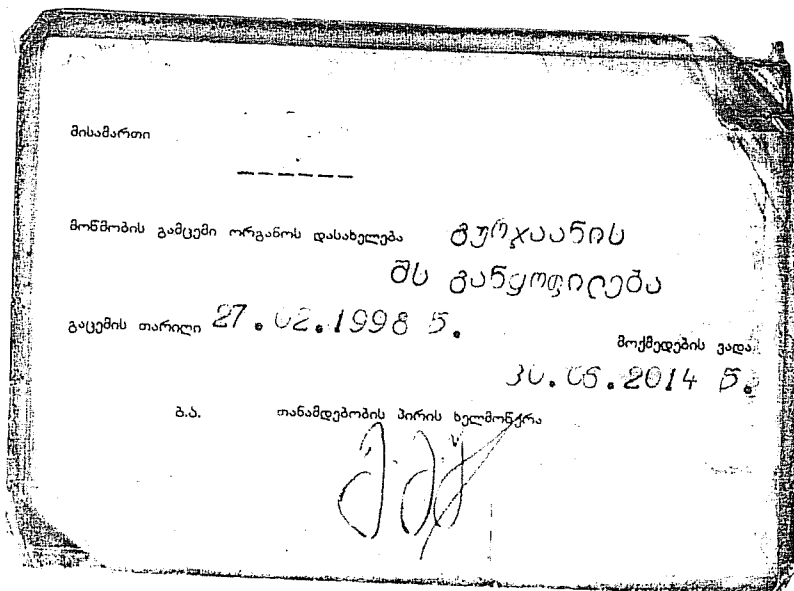 მისამართი
— — — — — —
მოწმობის გამცემი ორგანოს დასახელება გურჯაანის
შს განყოფილება
გაცემის თარიღი 27.02.1998 წ.
მოქმედების ვადა
30.06.2014 წ.
ბ.ა. თანამდებობის პირის ხელმოწერა